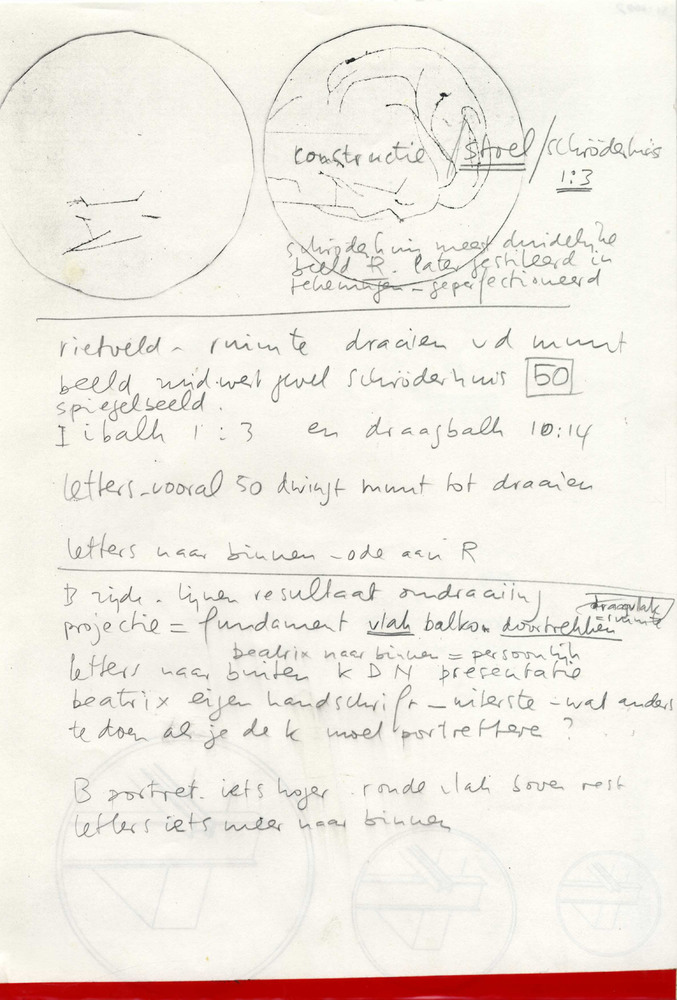 constructie / stoel / schröderhuis
1:3
schröderhuis meest duidelijke
beeld R. later gestileerd in
tekeningen - geperfectioneerd
rietveld - ruimte draaien vd munt
beeld zuid-west gevel schröderhuis 50
spiegelbeeld.
I ibalk 1:3 en draagbalk 10:14
letters - vooral 50 dwingt munt tot draaien
letters naar binnen - ode aan R
B zijde - lijnen resultaat omdraaiing
draagvlak
= ruimte
projectie = fundament vlak balkon doortrekken
beatrix naar binnen = persoonlijk
letters naar buiten K D N presentatie
beatrix eigen handschrift - uiterste - wat anders
te doen als je de k moet portrettere ?
B portret. iets hoger. ronde vlak boven rest
letters iets meer naar binnen